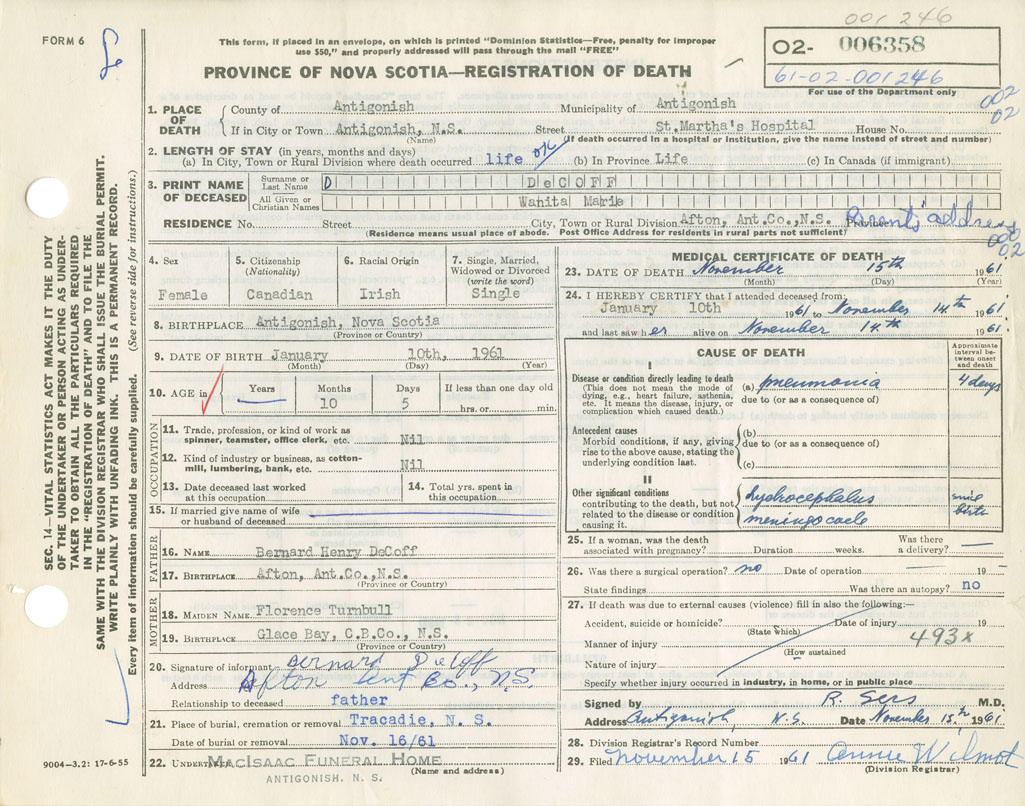 001246
FORM 6
This form, if placed in an envelope, on which is printed "Dominion Statistics—Free, penalty for improper
use $50," and properly addressed will pass through the mail "FREE"
PROVINCE OF NOVA SCOTIA—REGISTRATION OF DEATH
02- 006358
61-02-001246
For use of the Department only
002
02
SEC. 14—VITAL STATISTICS ACT MAKES IT THE DUTY
OF THE UNDERTAKER OR PERSON ACTING AS UNDER-
TAKER TO OBTAIN ALL THE PARTICULARS REQUIRED
IN THE "REGISTRATION OF DEATH" AND TO FILE THE
SAME WITH THE DIVISION REGISTRAR WHO SHALL ISSUE THE BURIAL PERMIT.
WRITE PLAINLY WITH UNFADING INK. THIS IS A PERMANENT RECORD.
Every item of information should be carefully supplied. (See reverse side for instructions.)
1. PLACE OF DEATH
County of Antigonish Municipality of Antigonish
If in City or Town Antigonish, N.S. Street St.Martha's Hospital House No.
(Name) (If death occurred in a hospital or institution, give the name instead of street and number)
2. LENGTH OF STAY (in years, months and days)
(a) In City, Town or Rural Division where death occurred life OK (b) In Province Life (c) In Canada (if immigrant)
3. PRINT NAME OF DECEASED
Surname or Last Name D DeCOFF
All Given or Christian Names Wanita Marie
RESIDENCE No. Street City, Town or Rural Division Afton, Ant.Co.,N.S. Province Parents' address
(Residence means usual place of abode. Post Office Address for residents in rural parts not sufficient)
002
02
4. Sex
Female
5. Citizenship
(Nationality)
Canadian
6. Racial Origin
Irish
7. Single, Married,
Widowed or Divorced
(write the word)
Single
8. BIRTHPLACE Antigonish, Nova Scotia
(Province or Country)
9. DATE OF BIRTH January 10th, 1961
(Month) (Day) (Year)
10. AGE in
Years Months Days If less than one day old
10 5 hrs. or min.
OCCUPATION
11. Trade, profession, or kind of work as
spinner, teamster, office clerk, etc. Nil
12. Kind of industry or business, as cotton-
mill, lumbering, bank, etc. Nil
13. Date deceased last worked
at this occupation
14. Total yrs. spent in
this occupation
15. If married give name of wife
or husband of deceased
FATHER
16. NAME Bernard Henry DeCoff
17. BIRTHPLACE Afton, Ant.Co.,N.S.
(Province or Country)
MOTHER
18. MAIDEN NAME Florence Turnbull
19. BIRTHPLACE Glace Bay, C.B.Co., N.S.
(Province or Country)
20. Signature of informant Bernard DeCoff
Address Afton Ant Co., N.S.
Relationship to deceased father
21. Place of burial, cremation or removal Tracadie, N. S.
Date of burial or removal Nov. 16/61
22. UNDERTAKER MACISAAC FUNERAL HOME
(Name and address)
ANTIGONISH, N. S.
9004-3.2: 17-6-55
MEDICAL CERTIFICATE OF DEATH
23. DATE OF DEATH November 15th 1961
(Month) (Day) (Year)
24. I HEREBY CERTIFY that I attended deceased from:
January 10th 1961 to November 14th 1961
and last saw her alive on November 14th 1961
CAUSE OF DEATH
Approximate
interval be-
tween onset
and death
I
Disease or condition directly leading to death
(This does not mean the mode of
dying, e.g., heart failure, asthenia,
etc. It means the disease, injury, or
complication which caused death.)
(a) pneumonia 4 days
due to (or as a consequence of)
Antecedent causes
Morbid conditions, if any, giving
rise to the above cause, stating the
underlying condition last.
(b)
due to (or as a consequence of)
(c)
II
Other significant conditions
contributing to the death, but not
related to the disease or condition
causing it.
hydrocephalus since
meningocoele birth
25. If a woman, was the death
associated with pregnancy? Duration weeks. Was there
a delivery?
26. Was there a surgical operation? no Date of operation 19
State findings Was there an autopsy? no
27. If death was due to external causes (violence) fill in also the following:—
Accident, suicide or homicide? Date of injury 19
(State which)
Manner of injury 493x
(How sustained
Nature of injury
Specify whether injury occurred in industry, in home, or in public place
Signed by R. Sers M.D.
Address Antigonish N.S. Date November 15th 1961
28. Division Registrar's Record Number
29. Filed November 15 1961 Annie Wilmot
(Division Registrar)